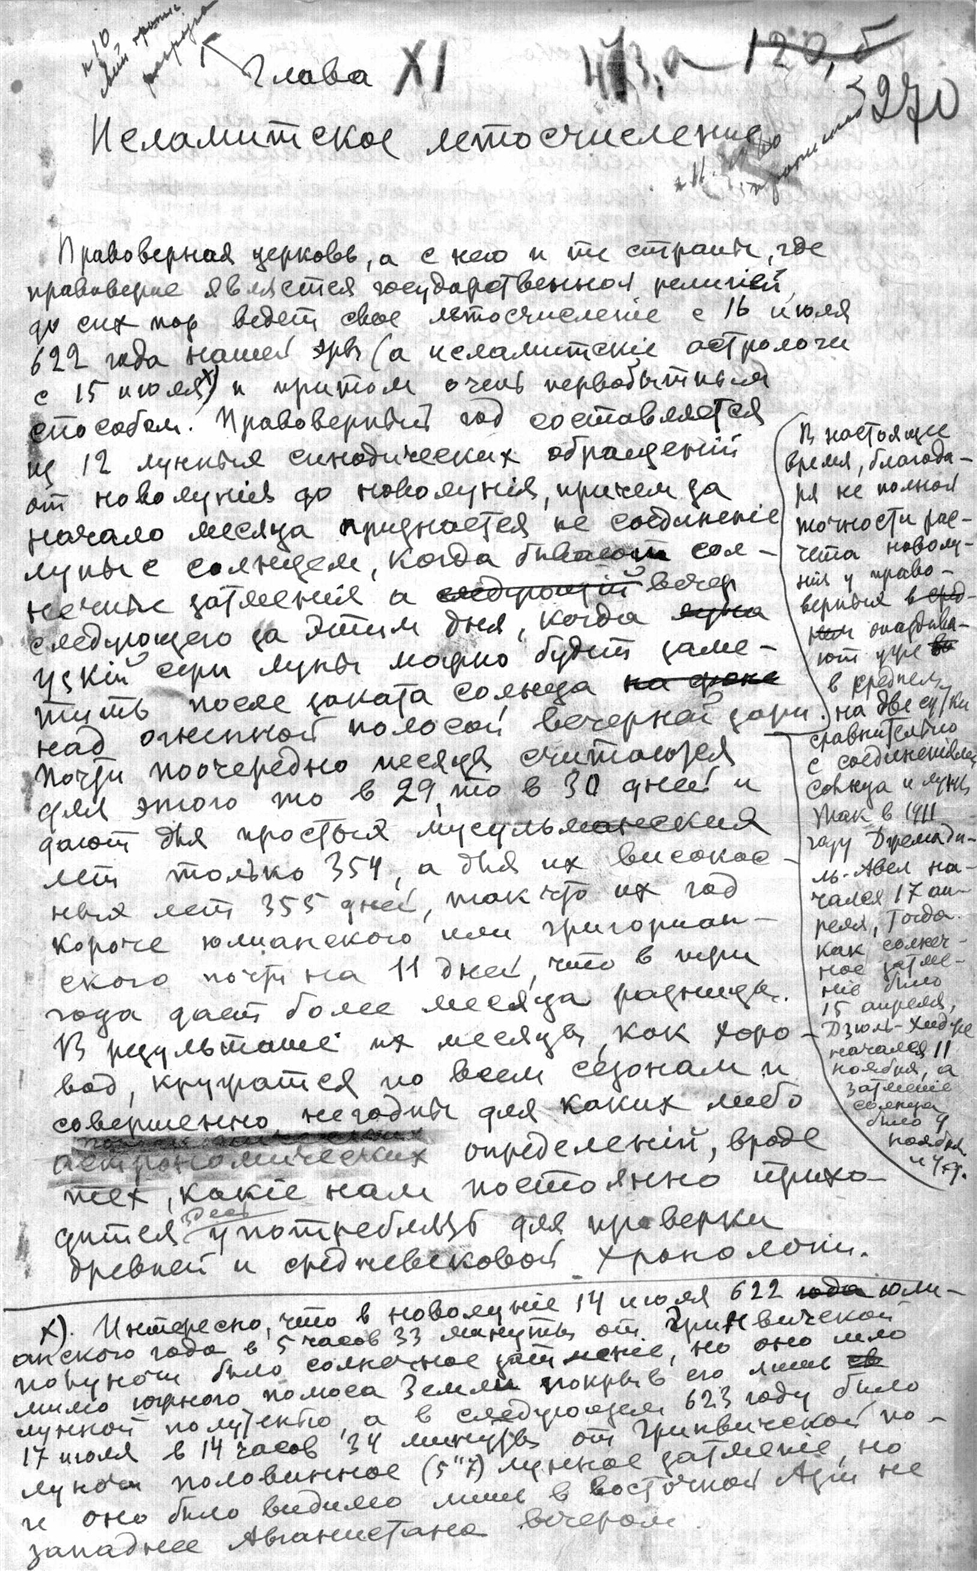 Глава XI
270
Исламитское летосчисление
Правоверная церковь, а с нею и те страны, где
правоверие является государственной религией,
до сих пор ведет свое летосчисление с 16 июля
622 года нашей эры (а исламитскіе астрологи
с 15 июля x) и притом очень первобытным
способом. Правоверный год составляется
из 12 лунных синодических обращений
от новолунія до новолунія, причем за
начало месяца признается не соединеніе
луны с солнцем, когда бывают сол-
нечные затменія а следующій вечер
следующего за этим дня, когда луна
узкій серп луны можно будет заме-
тить после заката солнца на фоне
над огненной полосой вечерней зари.
Почти поочередно месяцы считаются
для этого то в 29, то в 30 дней и
дают для простых мусульманских
лет только 354, а для их високос-
ных лет 355 дней, так что их год
короче юлианского или григориан-
ского почти на 11 дней, что в три
года дает более месяца разницы.
В результате их месяцы, как хоро-
вод, кружатся по всем сезонам и
совершенно негодны для каких либо
астрономических определеній, вроде
тех, какіе нам постоянно прихо-
дится здесь употреблять для проверки
древней и средневековой хронологіи.
В настоящее
время, благода-
ря не полной
точности рас-
чета новолу-
нія у право-
верных в сред-
нем опаздыва-
ют уже
в среднем
на двое сутки
сравнительно
с соединеніями
солнца и луны
Так в 1911
году Джемади-
ль-Авел на-
чался 17 ап-
реля, тогда
как солнеч-
ное затме-
ніе было
15 апреля,
Дзюль-Хидже
начался 11
ноября, а
затменіе
солнца
было 9
ноября
и т.д.
x). Интересно, что в новолуніе 14 июля 622 года юли-
анского года в 5 часов 33 минуты от Гринвической
полуночи было солнечное затменіе, но оно шло
мимо южного полюса Земли покрыв его лишь
лунной полутенью, а в следующем 623 году было
17 июля в 14 часов 34 минуты от Гринвической по-
луночи половинное (5"7) лунное затменіе, но
и оно было видимо лишь в восточной Азіи не
западнее Авганистана вечером.